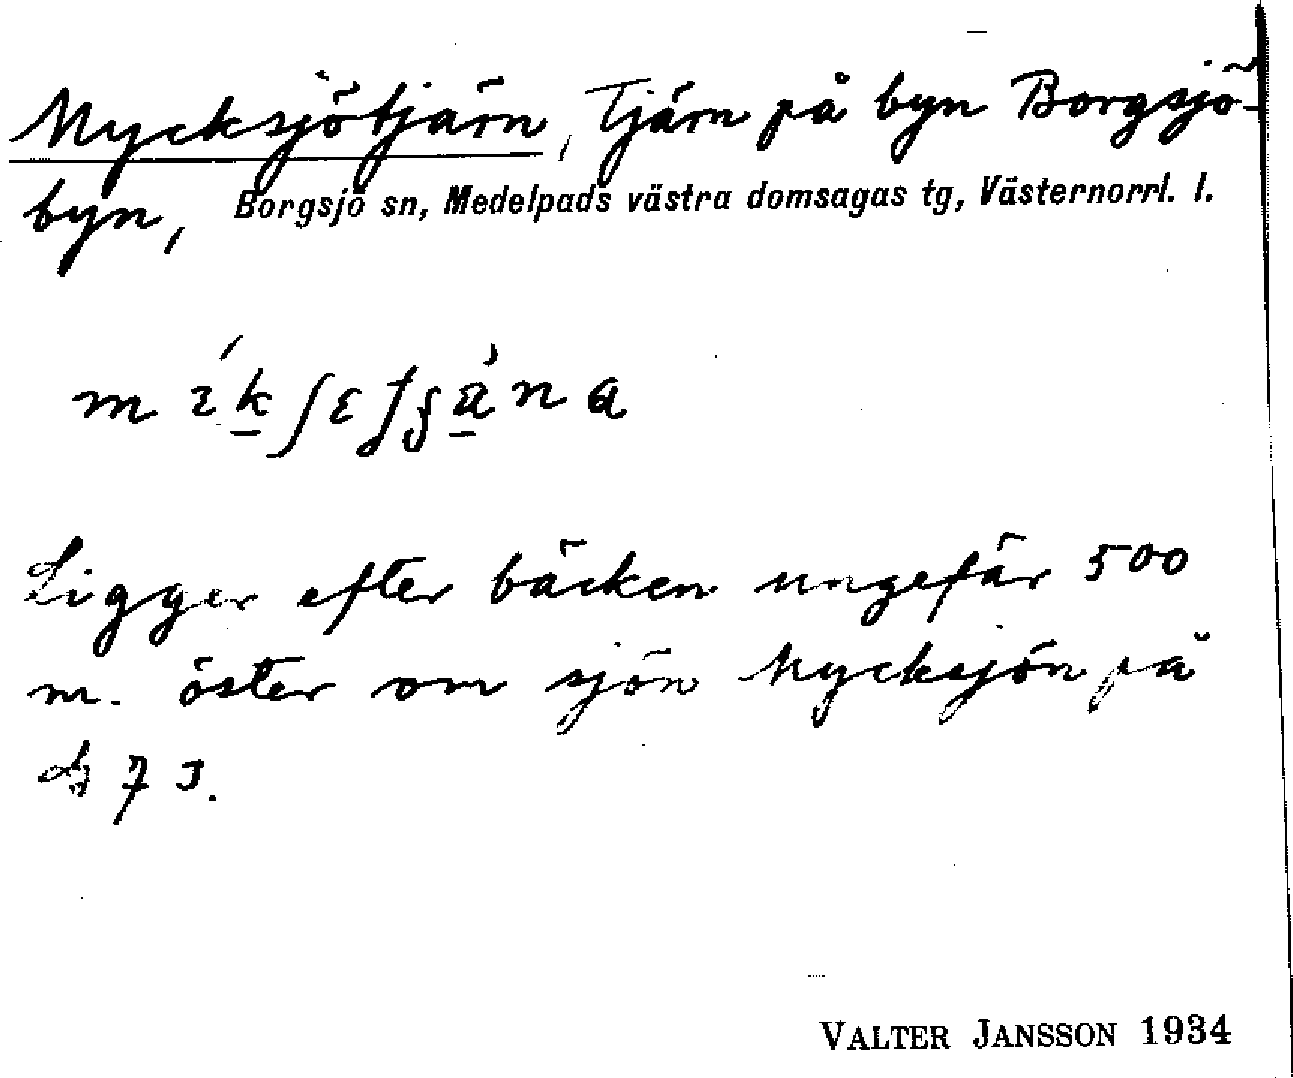 Mycksjötjärn, Tjärn på byn Borgsjö-
byn, Borgsjö sn, Medelpads västra domsagas tg, Västernorrl. l.
Ligger efter bäcken ungefär 500
m. öster om sjön Mycksjön på
VALTER JANSSON 1934